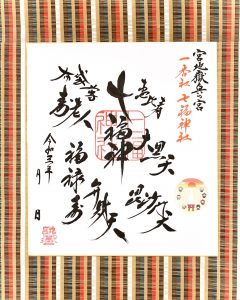 宮地嶽奥之宮
一番社 七福神社
恵比寿
大黒天
毘沙門天
七福神
弁財天
福禄寿
寿老人
令和三年
月
日